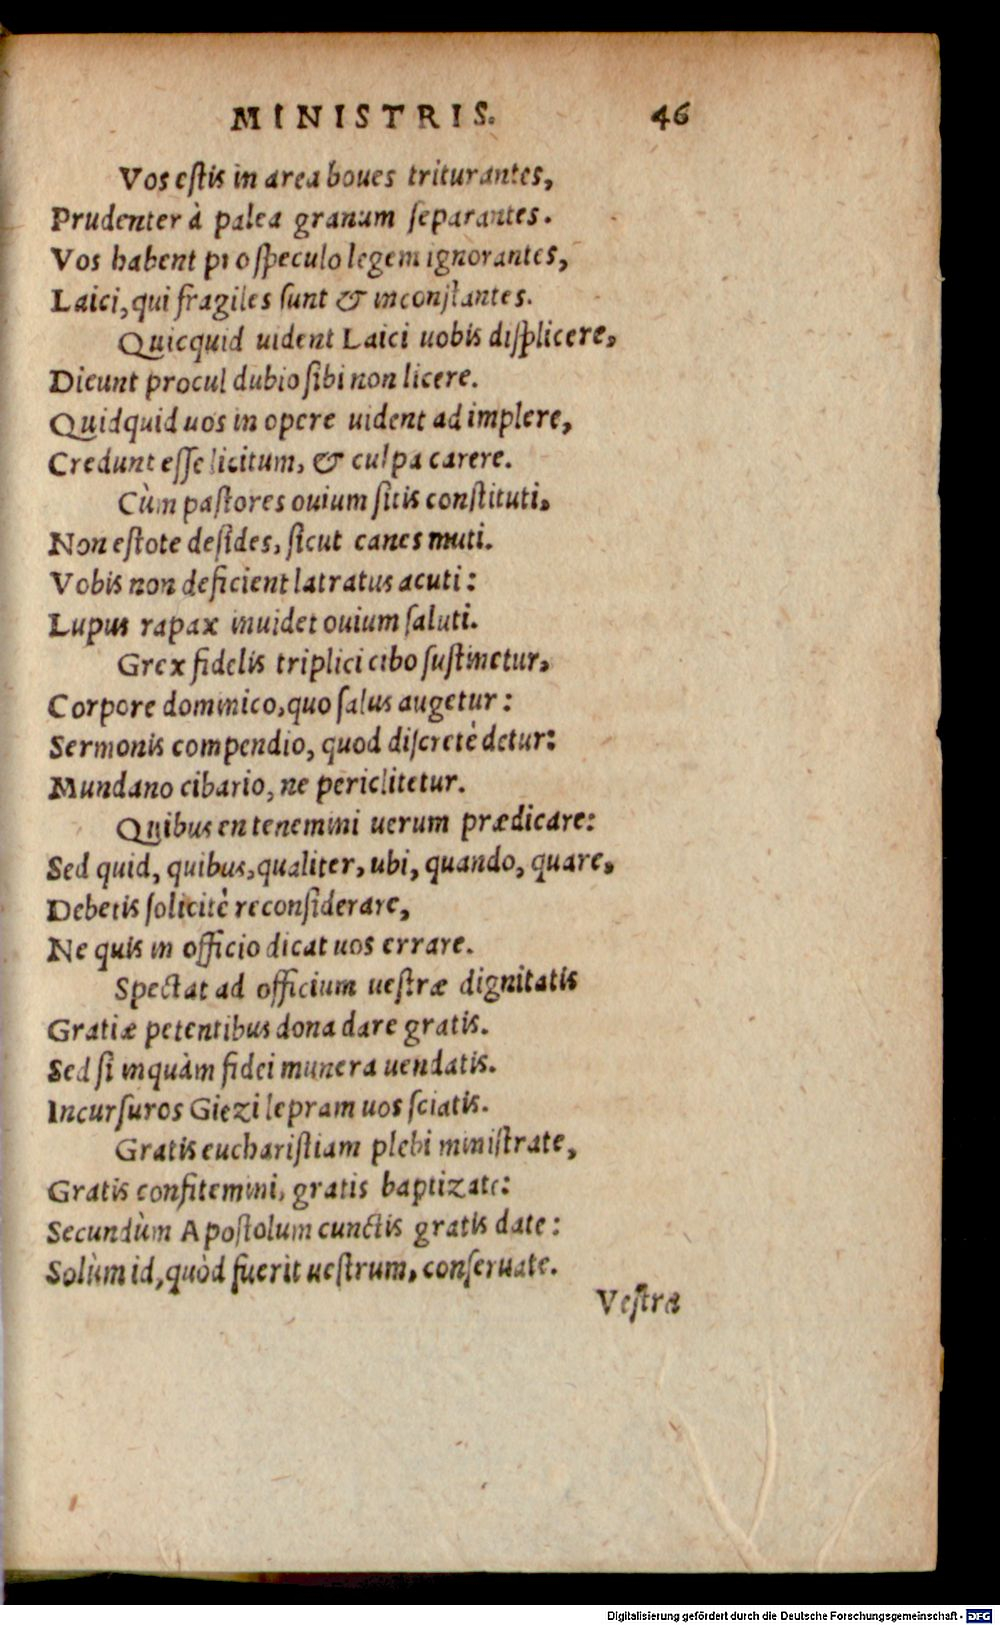 MINISTRIS. 46
Vos estis in area boues triturantes,
Prudenter à palea granum separantes.
Vos habent pro speculo legem ignorantes,
Laici, qui fragiles sunt & inconstantes.
Quicquid uident Laici uobis displicere,
Dicunt procul dubio sibi non licere.
Quidquid uos in opere uident adimplere,
Credunt esse licitum, & culpa carere.
Cùm pastores ouium sitis constituti,
Non estote desides, sicut canes muti.
Vobis non deficient latratus acuti:
Lupus rapax inuidet ouium saluti.
Grex fidelis triplici cibo sustinetur,
Corpore dominico, quo salus augetur:
Sermonis compendio, quod discretè detur:
Mundano cibario, ne periclitetur.
Quibus en tenemini uerum prædicare:
Sed quid, quibus, qualiter, ubi, quando, quare,
Debetis solicitè reconsiderare,
Ne quis in officio dicat uos errare.
Spectat ad officium uestræ dignitatis
Gratiæ petentibus dona dare gratis.
Sed si inquàm fidei munera uendatis.
Incursuros Giezi lepram uos sciatis.
Gratis eucharistiam plebi ministrate,
Gratis confitemini, gratis baptizate:
Secundùm Apostolum cunctis gratis date:
Solùm id, quòd fuerit uestrum, conseruate.
Vestra
Digitalisierung gefördert durch die Deutsche Forschungsgemeinschaft - DFG